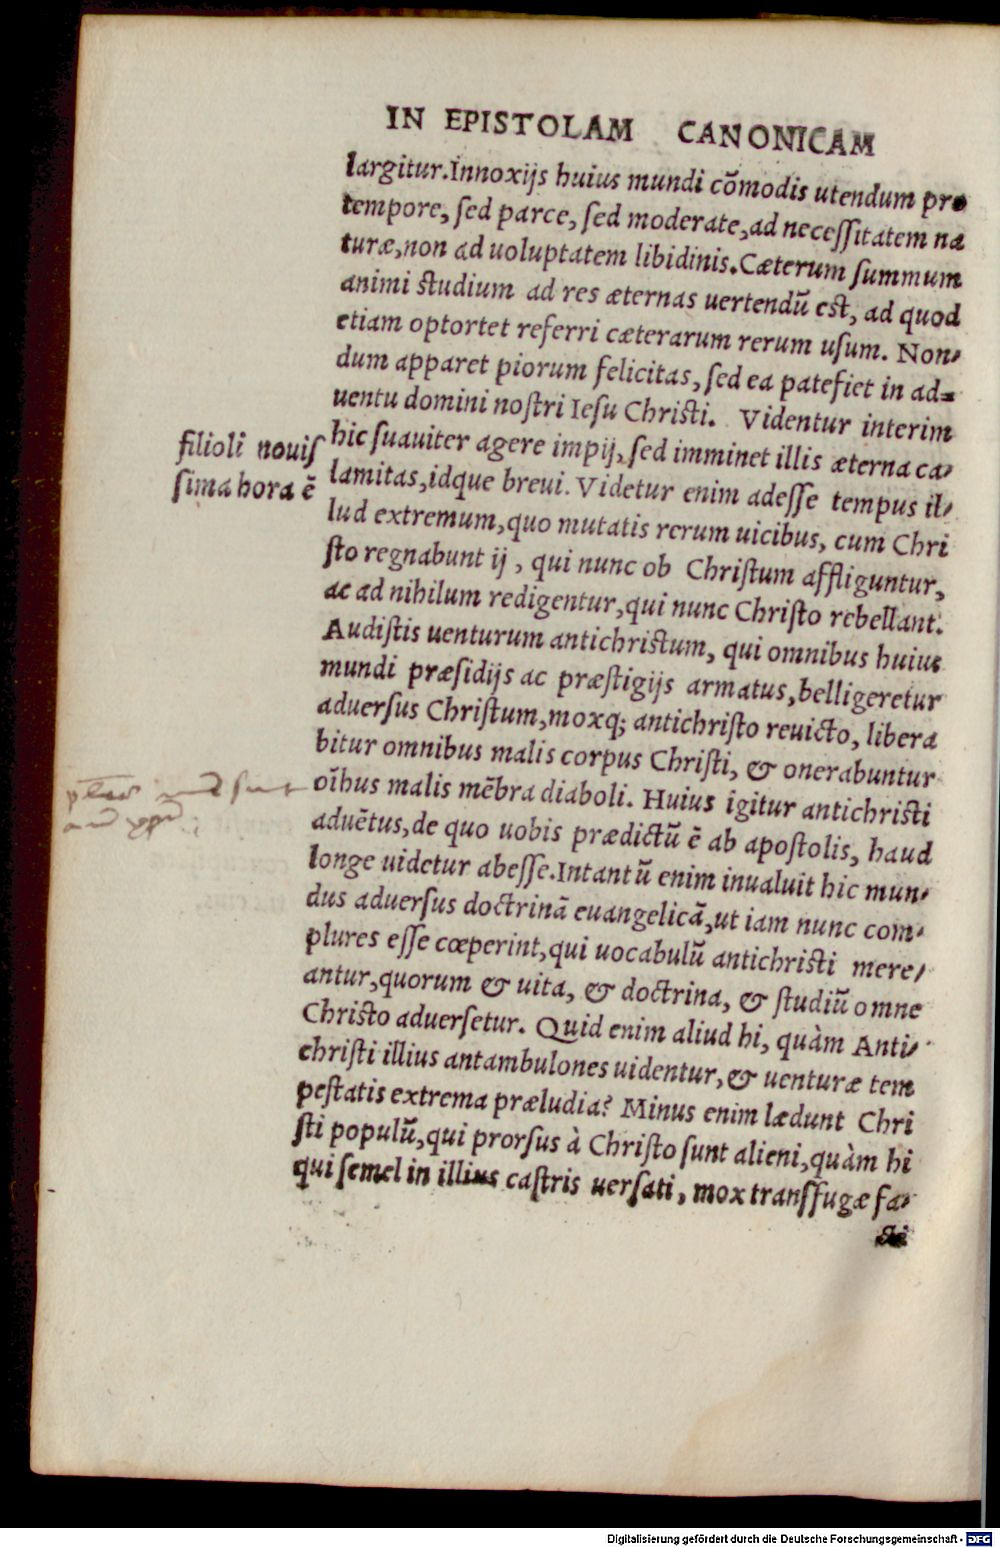 IN EPISTOLAM CANONICAM
largitur. Innoxijs huius mundi cõmodis utendum pro
tempore, sed parce, sed moderate, ad necessitatem na
turæ, non ad uoluptatem libidinis. Cæterum summum
animi studium ad res æternas uertendũ est, ad quod
etiam optortet referri cæterarum rerum usum. Non-
dum apparet piorum felicitas, sed ea patefiet in ad-
uentu domini nostri Iesu Christi. Videntur interim
filioli nouis
sima hora ẽ
hic suauiter agere impij, sed imminet illis æterna ca-
lamitas, idque breui. Videtur enim adesse tempus il-
lud extremum, quo mutatis rerum uicibus, cum Chri
sto regnabunt ij, qui nunc ob Christum affliguntur,
ac ad nihilum redigentur, qui nunc Christo rebellant.
Audistis uenturum antichristum, qui omnibus huius
mundi præsidijs ac præstigijs armatus, belligeretur
aduersus Christum, moxq; antichristo reuicto, libera
bitur omnibus malis corpus Christi, & onerabuntur
oĩbus malis mẽbra diaboli. Huius igitur antichristi
aduẽtus, de quo uobis prædictũ ẽ ab apostolis, haud
longe uidetur abesse. Intantũ enim inualuit hic mun-
dus aduersus doctrinã euangelicã, ut iam nunc com-
plures esse cœperint, qui uocabulũ antichristi mere-
antur, quorum & uita, & doctrina, & studiũ omne
Christo aduersetur. Quid enim aliud hi, quàm Anti-
christi illius antambulones uidentur, & uenturæ tem
pestatis extrema præludia? Minus enim lædunt Chri
sti populũ, qui prorsus à Christo sunt alieni, quàm hi
qui semel in illius castris uersati, mox transfugæ fa-
Digitalisierung gefördert durch die Deutsche Forschungsgemeinschaft - DFG